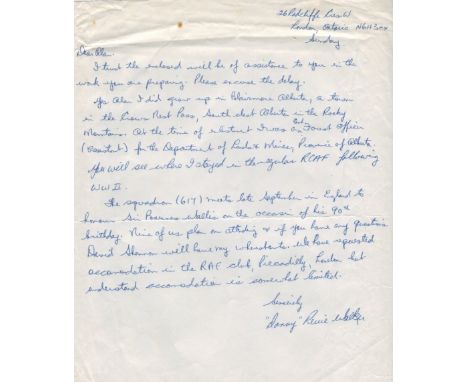 26 Radcliffe Cres W
London Ontario N6H 3X4
Sunday
Dear Alan.
I trust the enclosed will be of assistance to you in the
work you are preparing. Please excuse the delay.
Yes Alan I did grow up in Blairmore Alberta, a town
in the Crows Nest Pass, South west Alberta in the Rocky
Mountains. At the time of enlistment I was an Forest Officer
(assistant) for the Department of Lands & Mines, Province of Alberta.
You will see where I stayed in the regular RCAF following
WW II.
The squadron (617) meets late September in England to
honour Sir Barnes Wallis on the occasion of his 90th
birthday. Nine of us plan on attending & if you have any questions
David Shannon will have my whereabouts. We have requested
accomodation in the RAF club, Piccadilly, London but
understand accomodation is somewhat limited.
Sincerely
"Danny" Revie Walker